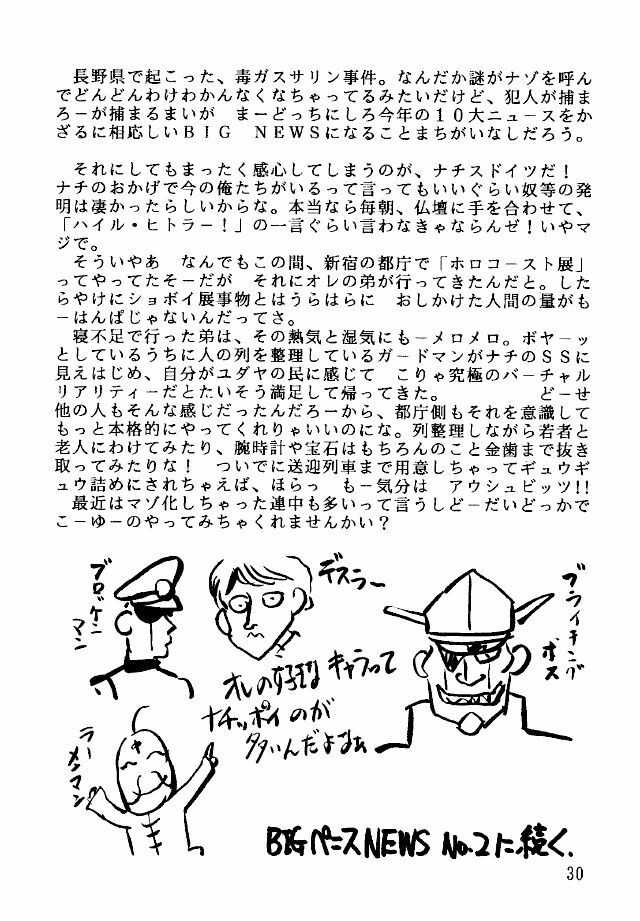 長野県で起こった、毒ガスサリン事件。なんだか謎がナゾを呼ん
でどんどんわけわかんなくなちゃってるみたいだけど、犯人が捕ま
ろーが捕まるまいが　まーどっちにしろ今年の１０大ニュースをか
ざるに相応しいＢＩＧ　ＮＥＷＳになることまちがいなしだろう。

　それにしてもまったく感心してしまうのが、ナチスドイツだ！
ナチのおかげで今の俺たちがいるって言ってもいいぐらい奴等の発
明は凄かったらしいからな。本当なら毎朝、仏壇に手を合わせて、
「ハイル・ヒトラー！」の一言ぐらい言わなきゃならんゼ！いやマ
ジで。
　そういやあ　なんでもこの間、新宿の都庁で「ホロコースト展」
ってやってたそーだが　それにオレの弟が行ってきたんだと。した
らやけにショボイ展事物とはうらはらに　おしかけた人間の量がも
ーはんぱじゃないんだってさ。
　寝不足で行った弟は、その熱気と湿気にもーメロメロ。ボヤーッ
としているうちに人の列を整理しているガードマンがナチのＳＳに
見えはじめ、自分がユダヤの民に感じて　こりゃ究極のバーチャル
リアリティーだとたいそう満足して帰ってきた。　　　　　どーせ
他の人もそんな感じだったんだろーから、都庁側もそれを意識して
もっと本格的にやってくれりゃいいのにな。列整理しながら若者と
老人にわけてみたり、腕時計や宝石はもちろんのこと金歯まで抜き
取ってみたりな！　ついでに送迎列車まで用意しちゃってギュウギ
ュウ詰めにされちゃえば、ほらっ　もー気分は　アウシュビッツ!!
　最近はマゾ化しちゃった連中も多いって言うしどーだいどっかで
こーゆーのやってみちゃくれませんかい？
ブロッケン
マン
デスラー
ブライキング
ボス
オレの好きな キャラって
ナチッポイのが
多いんだよなぁ
ラー
メンマン
BIGペニスNEWS No.2に続く.
30